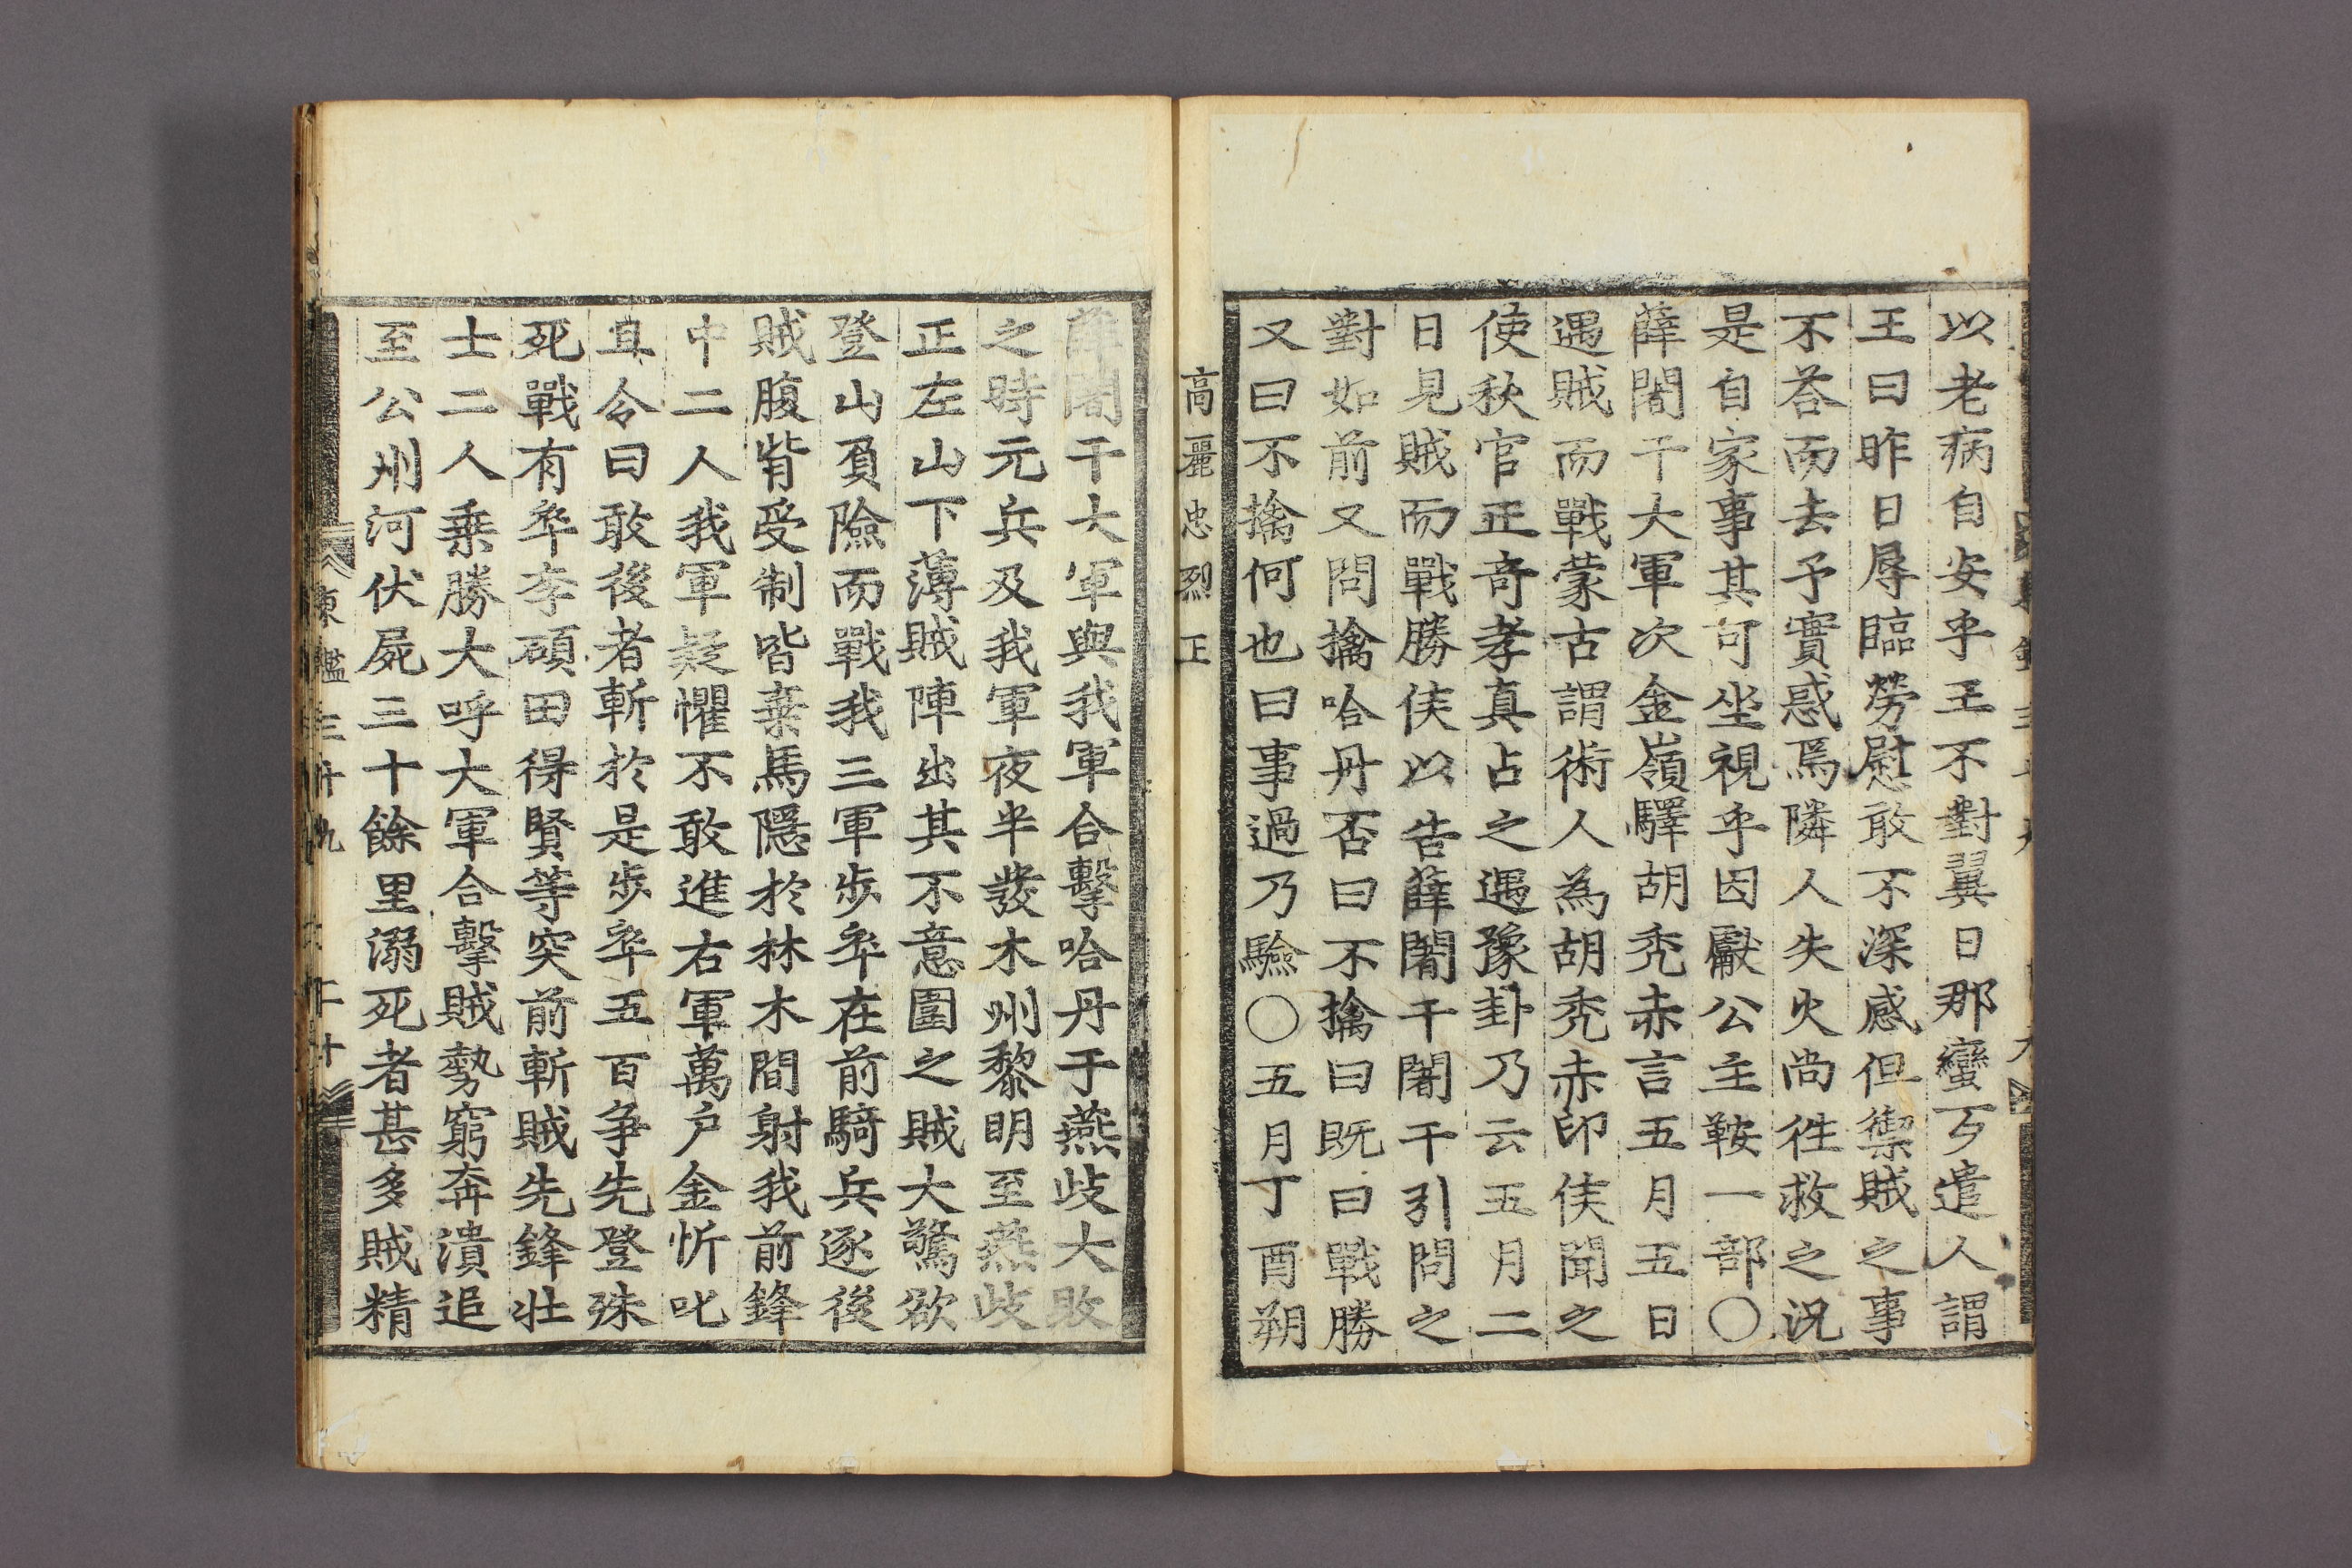 以老病自安乎王不對翼日那蠻歹遣人謂
王曰昨日辱臨勞慰敢不深感但禦賊之事
不荅而去予實惑焉隣人失火尚徃救之况
是自家事其可坐視乎因獻公主鞍一部○
薛闍干大軍次金嶺驛胡禿赤言五月五日
遇賊而戰蒙古謂術人為胡禿赤印侯聞之
使秋官正竒孝真占之遇豫卦乃云五月二
日見賊而戰勝侯以告薛闍干闍干引問之
對如前又問擒哈丹否曰不擒曰既曰戰勝
又曰不擒何也曰事過乃驗○五月丁酉朔
高麗忠烈王
薛闍干大軍與我軍合擊哈丹于燕歧大敗
之時元兵及我軍夜半發木州黎明至燕歧
正左山下薄賊陣出其不意圍之賊大驚欲
登山負險而戰我三軍步卒在前騎兵逐後
賊腹背受制皆棄馬隱於林木間射我前鋒
中二人我軍疑懼不敢進右軍萬户金忻叱
且令曰敢後者斬於是步卒五百争先登殊
死戰有卒李碩田得賢等突前斬賊先鋒壯
士二人乗勝大呼大軍合擊賊勢窮奔潰追
至公州河伏屍三十餘里溺死者甚多賊精
東鑑三十九 二十